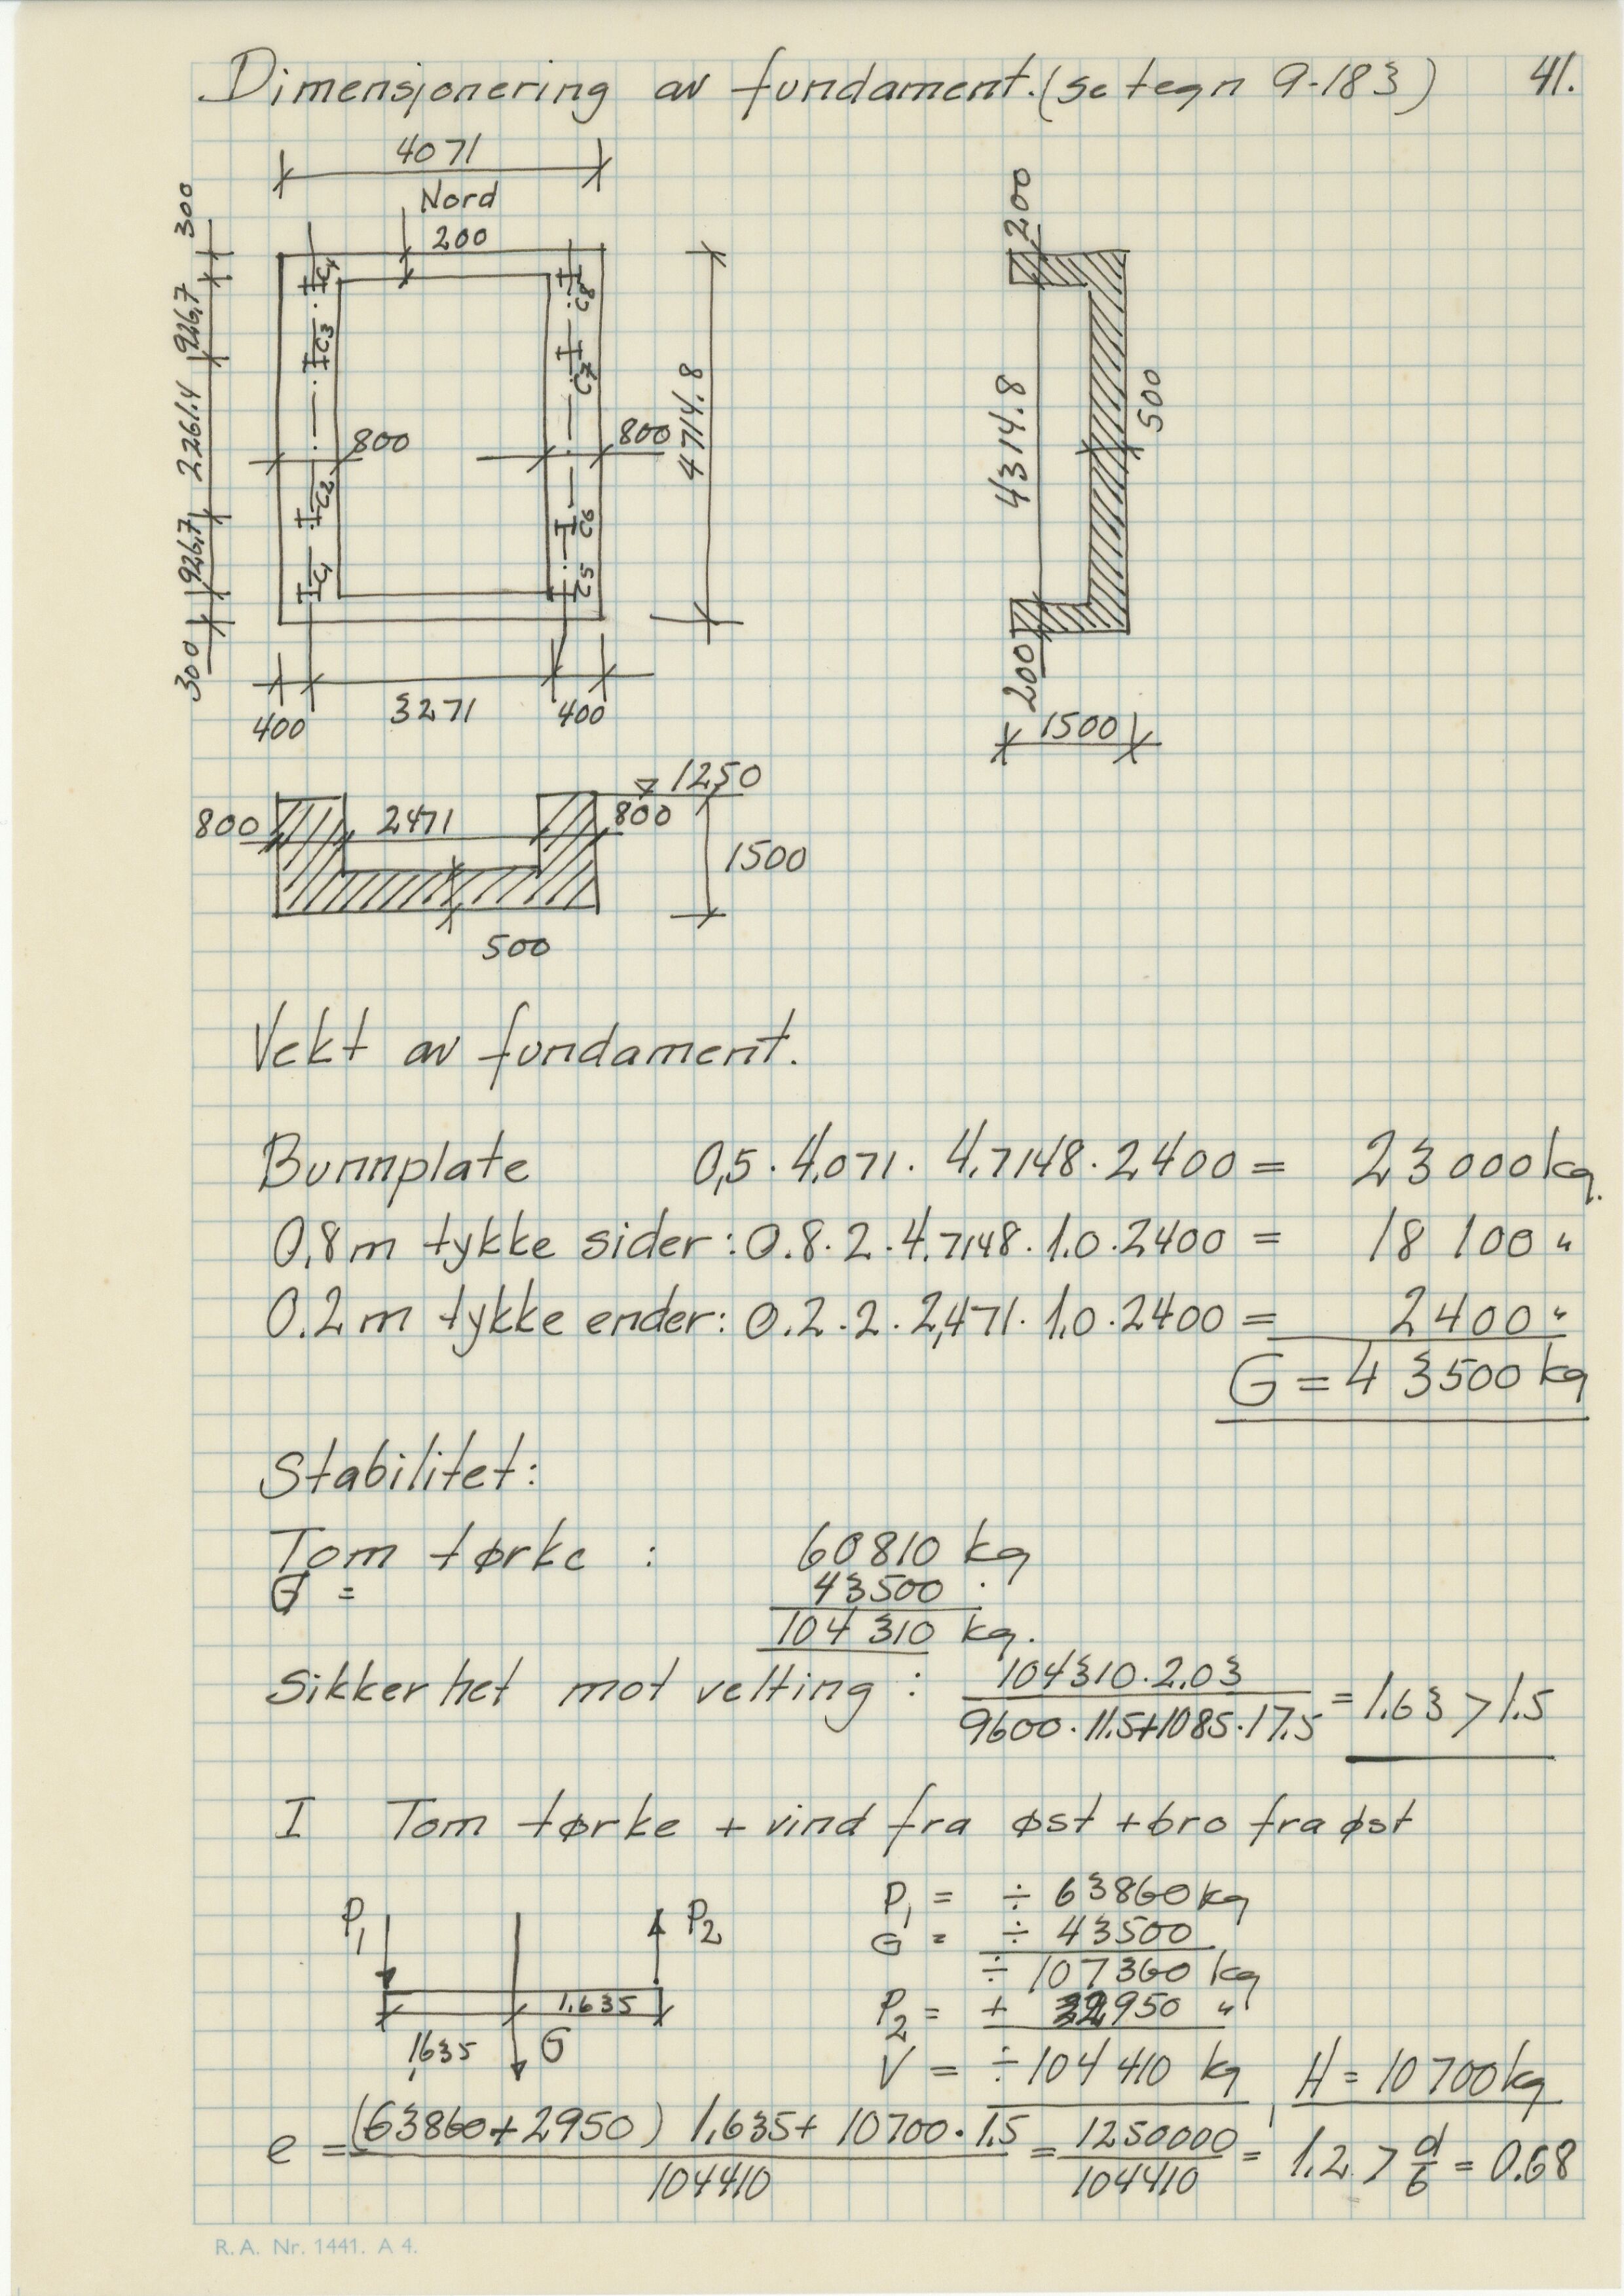 Dimensjonering av fundament. (se tegn 9-183) 41.
4071
Nord
200
300
926,7
2261.4
926,7
300
C4
C3
C2
C1
C8
C7
C6
C5
800
800
4714.8
400
3271
400
200
4314.8
500
200
1500
1250
800
2471
800
1500
500
Vekt av fundament.
Bunnplate 0,5 · 4,071 · 4,7148 · 2400 = 23000 kg.
0,8 m tykke sider: 0.8 · 2 · 4,7148 · 1.0 · 2400 = 18 100 "
0.2 m tykke ender: 0.2 · 2 · 2,471 · 1,0 · 2400 = 2400 "
G = 43500 kg
Stabilitet:
Tom tørke : 60810 kg
G = 43500 ·
104 310 kg.
Sikkerhet mot velting : 104310 · 2.03 / 9600 · 11.5 + 1085 · 17.5 = 1.63 > 1.5
I Tom tørke + vind fra øst + bro fra øst
P1 P2
1.635
1,635 G
P1 = ÷ 63860 kg
G = ÷ 43500
÷ 107360 kg
P2 = + 2950 "
V = ÷ 104 410 kg, H = 10 700 kg
e = (63860 + 2950) 1,635 + 10700 · 1.5 / 104410 = 1250000 / 104410 = 1.2 > d/6 = 0.68
R.A. Nr. 1441. A 4.